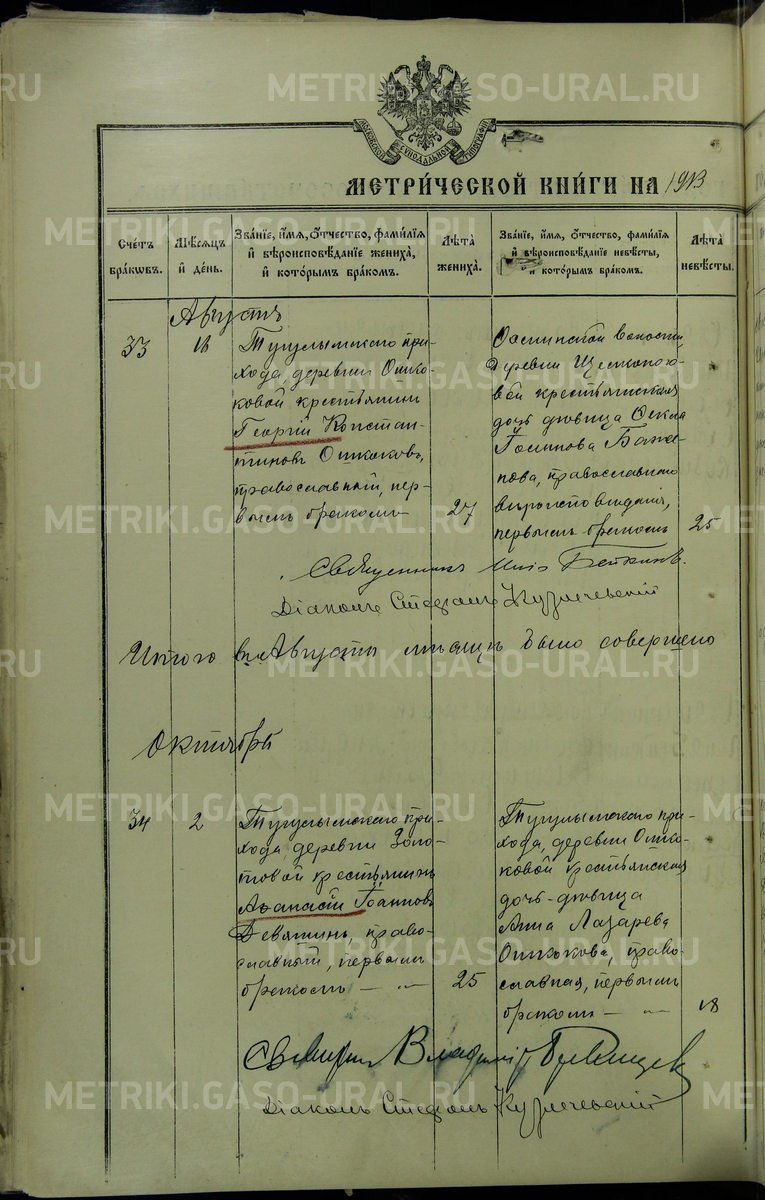 METRIKI.GASO-URAL.RU
МЕТРИ́ЧЕСКОЙ КНИ́ГИ НА 1913
Сче́тъ бра́кωвъ.
Мѣ́сѧцъ и҆ де́нь.
Зва́нїе, и҆́мѧ, о҆́тчество, фамилїѧ
и҆ вѣроисповѣ́данїе жениха̀,
и҆ кото́рымъ бра́комъ.
Лѣ́та жениха̀.
Зва́нїе, и҆́мѧ, о҆́тчество, фамилїѧ
и҆ вѣроисповѣ́данїе невѣ́сты,
и҆ кото́рымъ бра́комъ.
Лѣ́та невѣ́сты.
Августъ
33
18
Тугулымскаго при-
хода, деревни Ошко-
ковой крестьянинъ
Георгій Констан-
тиновъ Ошкоковъ,
православный, пер-
вымъ бракомъ
27
волости
деревни
вой крестьянская
дочь девица
православнаго
вероисповеданія,
первымъ бракомъ
25
Священникъ
Діаконъ Стефанъ Кузмечевскій
Итого въ Августѣ мѣсяцѣ было совершено
Октябрь
34
2
Тугулымскаго при-
хода, деревни Золо-
товой крестьянинъ
Аѳанасій Іоанновъ
Девятинъ, право-
славный, первымъ
бракомъ — „ —
25
Тугулымскаго при-
хода, деревни Ошко-
ковой крестьянская
дочь-девица
Анна Лазарева
Ошкокова, право-
славная, первымъ
бракомъ — „ —
18
Владимір
Діаконъ Стефанъ Кузмечевскій